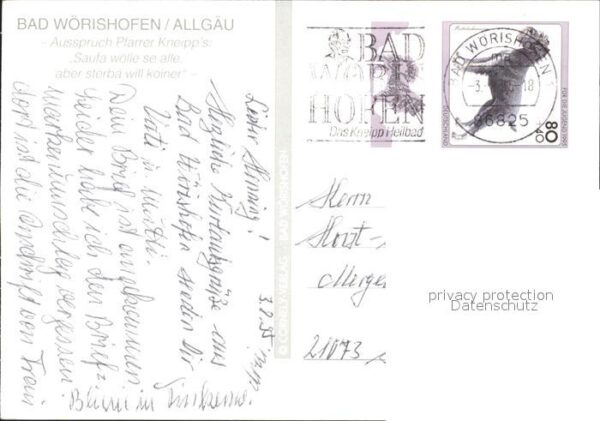 BAD WÖRISHOFEN / ALLGÄU
– Ausspruch Pfarrer Kneipp's:
„Saufa wölle se alle,
aber sterba will koiner" –
Lieber Henning!
Herzliche Kurlaubsgrüße aus
Bad Wörishofen senden Dir
Vati u. Mutti.
Dein Brief ist angekommen
leider habe ich den Brief=
umschlag vergessen
dort ist die Anschrift von Frau
Blum in
3.8.95
© VERLAG - BAD WÖRISHOFEN
BAD
WÖRIS
HOFEN
Das Kneipp Heilbad
BAD WÖRISHOFEN
-3. -18
86825
80
+40
FÜR DIE JUGEND 1995
DEUTSCHLAND
Herrn
Horst-
21073
privacy protection
Datenschutz